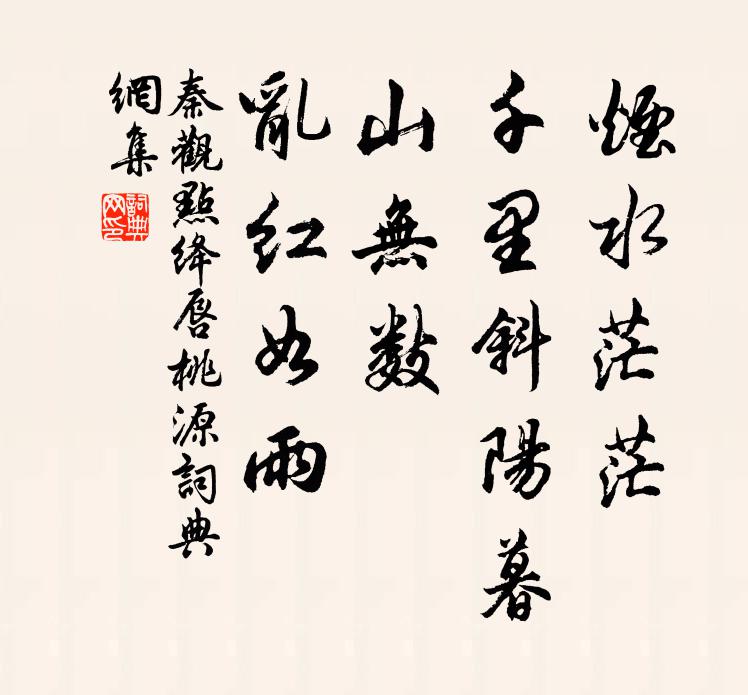 煙水茫茫
千里斜陽暮
山無數
亂紅如雨
秦觀點絳唇桃源詞典
網集
詞典
网印